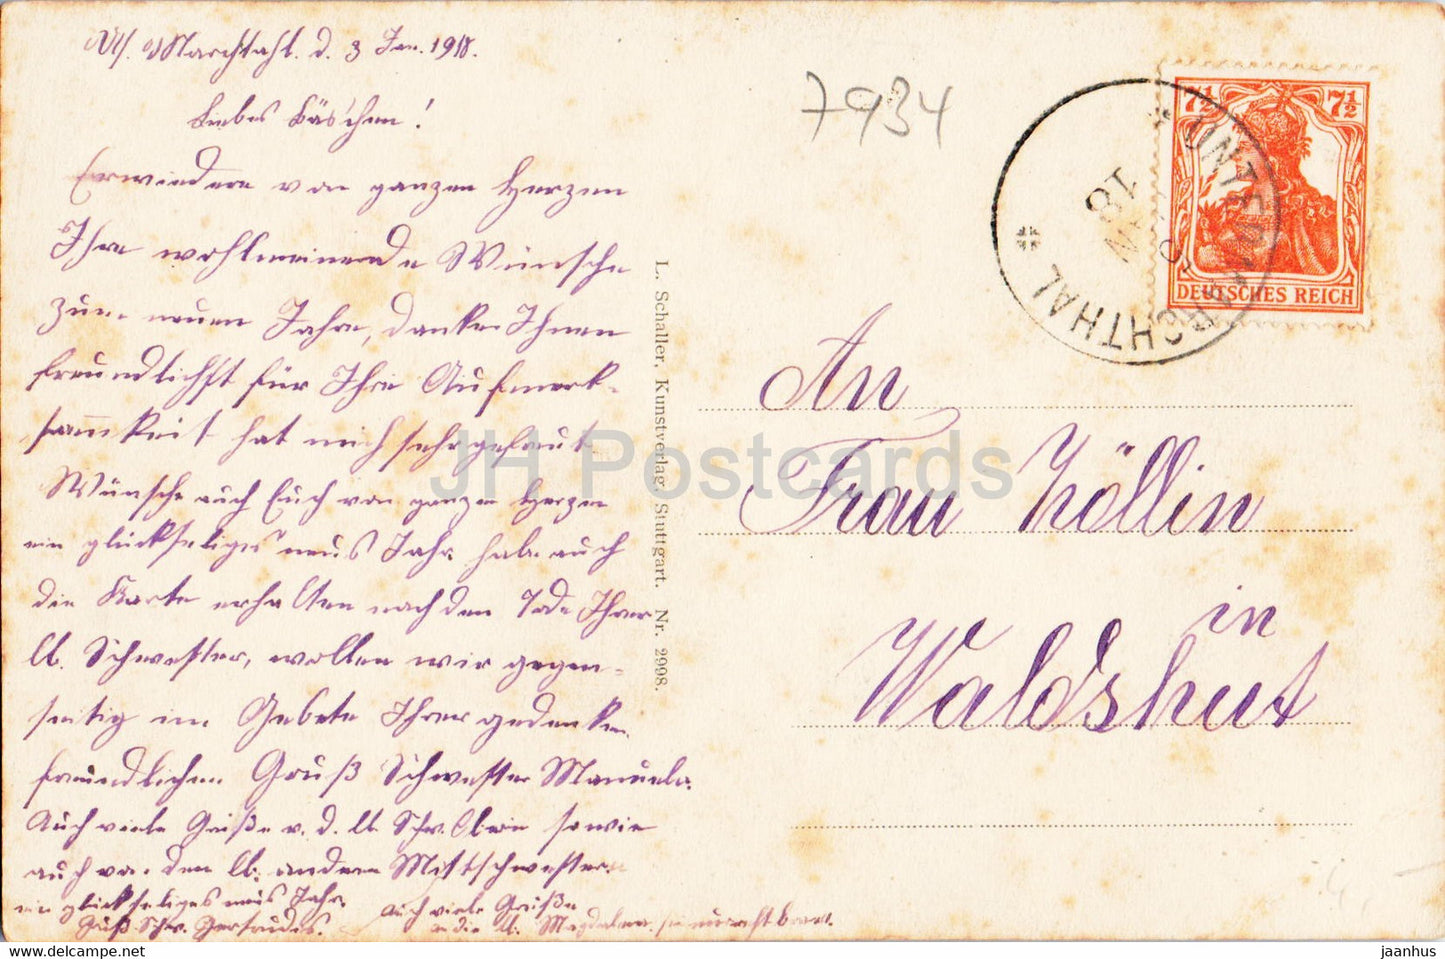 Marchtahl. d. 3 Jan. 1918.
Liebes Bäschen!
Erwiedere von ganzem Herzen
Ihre wohlmeinende Wünsche
zum neuen Jahre, danke Ihnen
freundlichst für Ihre Aufmerk-
samkeit hat mich sehr gefreut
Wünsche auch Euch von ganzem Herzen
ein glückseliges neues Jahr. habe auch
die Karte erhalten nach dem Tode Ihrer
lb. Schwester, wollen wir gegen-
seitig im Gebete Ihrer gedenken.
freundlichen Gruß Schwester Manuela.
Auch viele Grüße v. d. lb. Schw. sowie
auch von den lb. anderen Mittschwestern
ein glückseliges neues Jahr.
Gruß Schw. Gertrudis.
Auch viele Grüße
an die lb. Magdalena, sei recht brav.
L. Schaller, Kunstverlag, Stuttgart. Nr. 2998.
7934
7½ 7½
DEUTSCHES REICH
UNTERMARCHTHAL
18
An
Frau Zöllin
in
Waldshut
JH Postcards
HIPPOSTCARD.COM
jaanhus